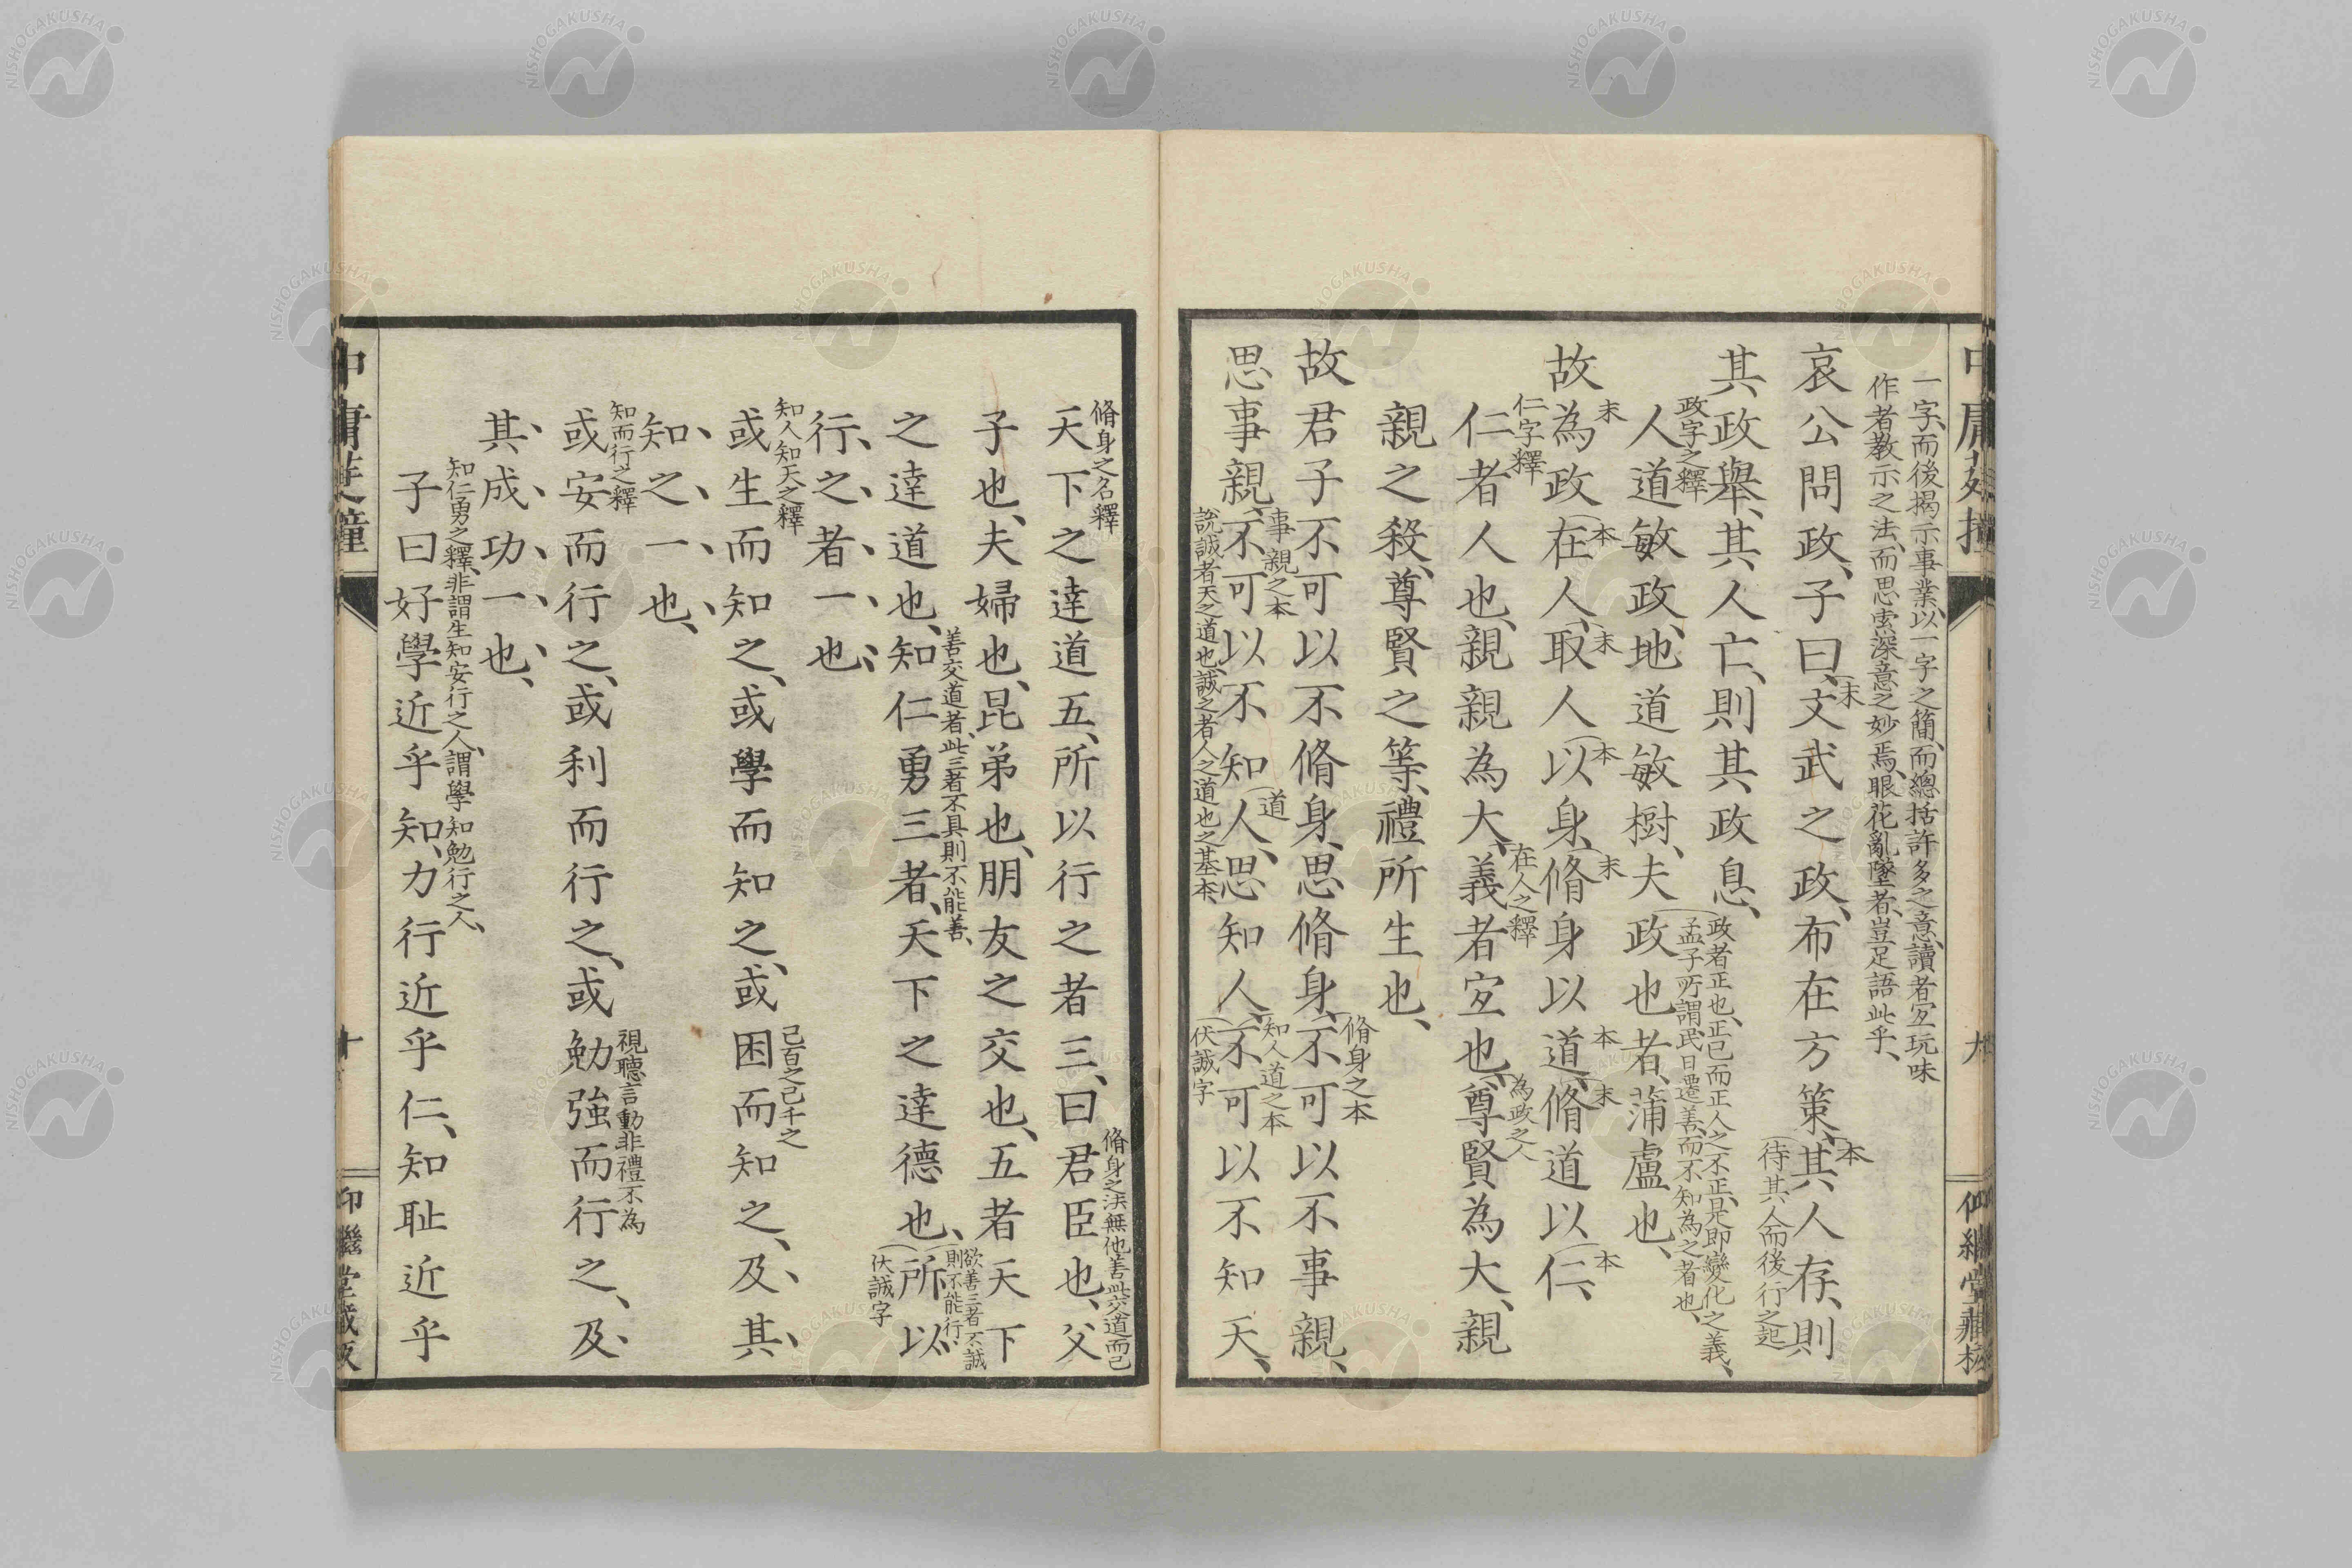 一字、而後揭示事業、以一字之簡、而總括許多之意、讀者宐玩味
作者教示之法、而思索深意之妙焉、眼花亂墜者、豈足語此乎、
哀公問政、子曰、文武之政、布在方策、其人存、則
末
本
待其人而後行之起
其政舉、其人亡、則其政息、
政字之釋
政者正也、正己而正人之不正、是即變化之義、
孟子所謂民日遷善、而不知為之者也、
人道敏政、地道敏樹、夫政也者、蒲盧也、
故為政在人、取人以身、脩身以道、脩道以仁、
末
本
末
本
末
本
末
本
仁字釋
在人之釋
為政之人
仁者人也、親親為大、義者宐也、尊賢為大、親
親之殺、尊賢之等、禮所生也、
脩身之本
故君子不可以不脩身、思脩身、不可以不事親、
事親之本
道
知人道之本
思事親、不可以不知人、思知人、不可以不知天、
說誠者天之道也、誠之者人之道也之基本、
伏誠字
脩身之名釋
脩身之法無他善此交道而已
天下之達道五、所以行之者三、曰君臣也、父
子也、夫婦也、昆弟也、朋友之交也、五者天下
善交道者、此三者不具則不能善、
欲善三者不誠
則不能行、
之達道也、知仁勇三者、天下之達德也、所以
伏誠字
行之者一也、
知人知天之釋
己百之己千之
或生而知之、或學而知之、或困而知之、及其
知之一也、
知而行之釋
視聽言動非禮不為
或安而行之、或利而行之、或勉強而行之、及
其成功一也、
知仁勇之釋、非謂生知安行之人、謂學知勉行之人、
子曰好學近乎知、力行近乎仁、知耻近乎
中庸
十